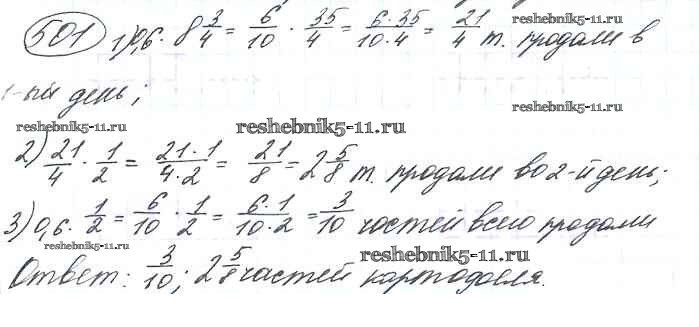 501 1) 0,6 · 8 3/4 = 6/10 · 35/4 = 6·35/10·4 = 21/4 т. продали в
reshebnik5-11.ru
reshebnik5-11.ru
1-ый день;
reshebnik5-11.ru
reshebnik5-11.ru
reshebnik5-11.ru
2) 21/4 · 1/2 = 21·1/4·2 = 21/8 = 2 5/8 т. продали во 2-й день;
3) 0,6 · 1/2 = 6/10 · 1/2 = 6·1/10·2 = 3/10 частей всего продали
reshebnik5-11.ru
reshebnik5-11.ru
Ответ: 3/10; 2 5/8 частей картофеля.
reshebnik5-11.ru